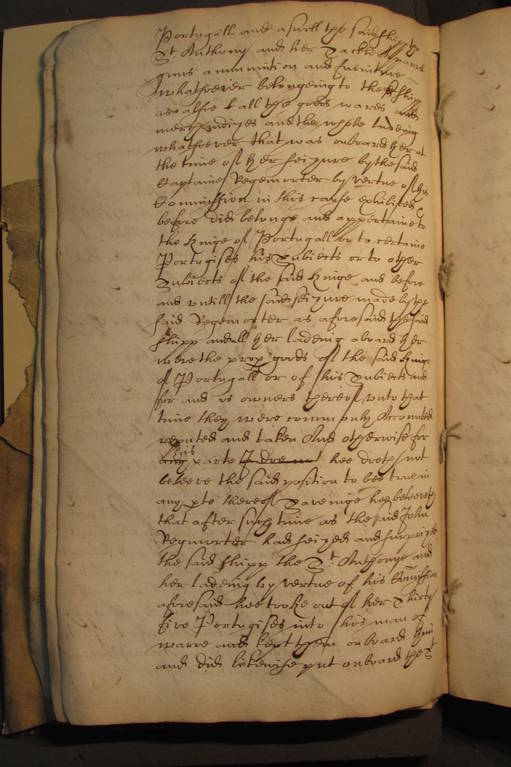 Portugall and aswell the said shipp the
St Anthony and her tackle apparrell
guns amunition and furniture
whatsoever belongeing to the shipp
as alsoe all the goods wares and
merchandizes and the whole ladeing
whatsoever that was onboard her at
the time of her seizure by the said
Captaine Regemorter by vertue of his
Commission in this cause exhibited
before did belonge and appertaine to
the Kinge of Portugall or to certaine
Portugises his subiects or to other
subiects of the said Kinge and before
and untill the said seizure made by the
said Regemorter as aforesaid the said
shipp and all her ladeing aboard her
were the prop goods of the said Kinge
of Portugall or of his subiects and
for and as owners thereof unto that
time they were commonly accounted
reputed and taken And otherwise for
his parte hee doeth not
beleeve the said position to bee true in
any pte thereof saveinge hee beleeveth
that after such time as the said John
Regmorter had seized and surprized
the said shipp the St Anthonye and
her ladeing by vertue of his Comission
aforesaid hee tooke out of her thirty
five Portugises into his man of
warre and kept them onboard him
and did likewise put onboard the St